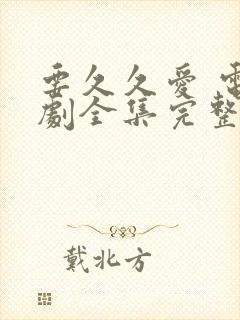 要久久愛 電
劇全集完整
戴北方